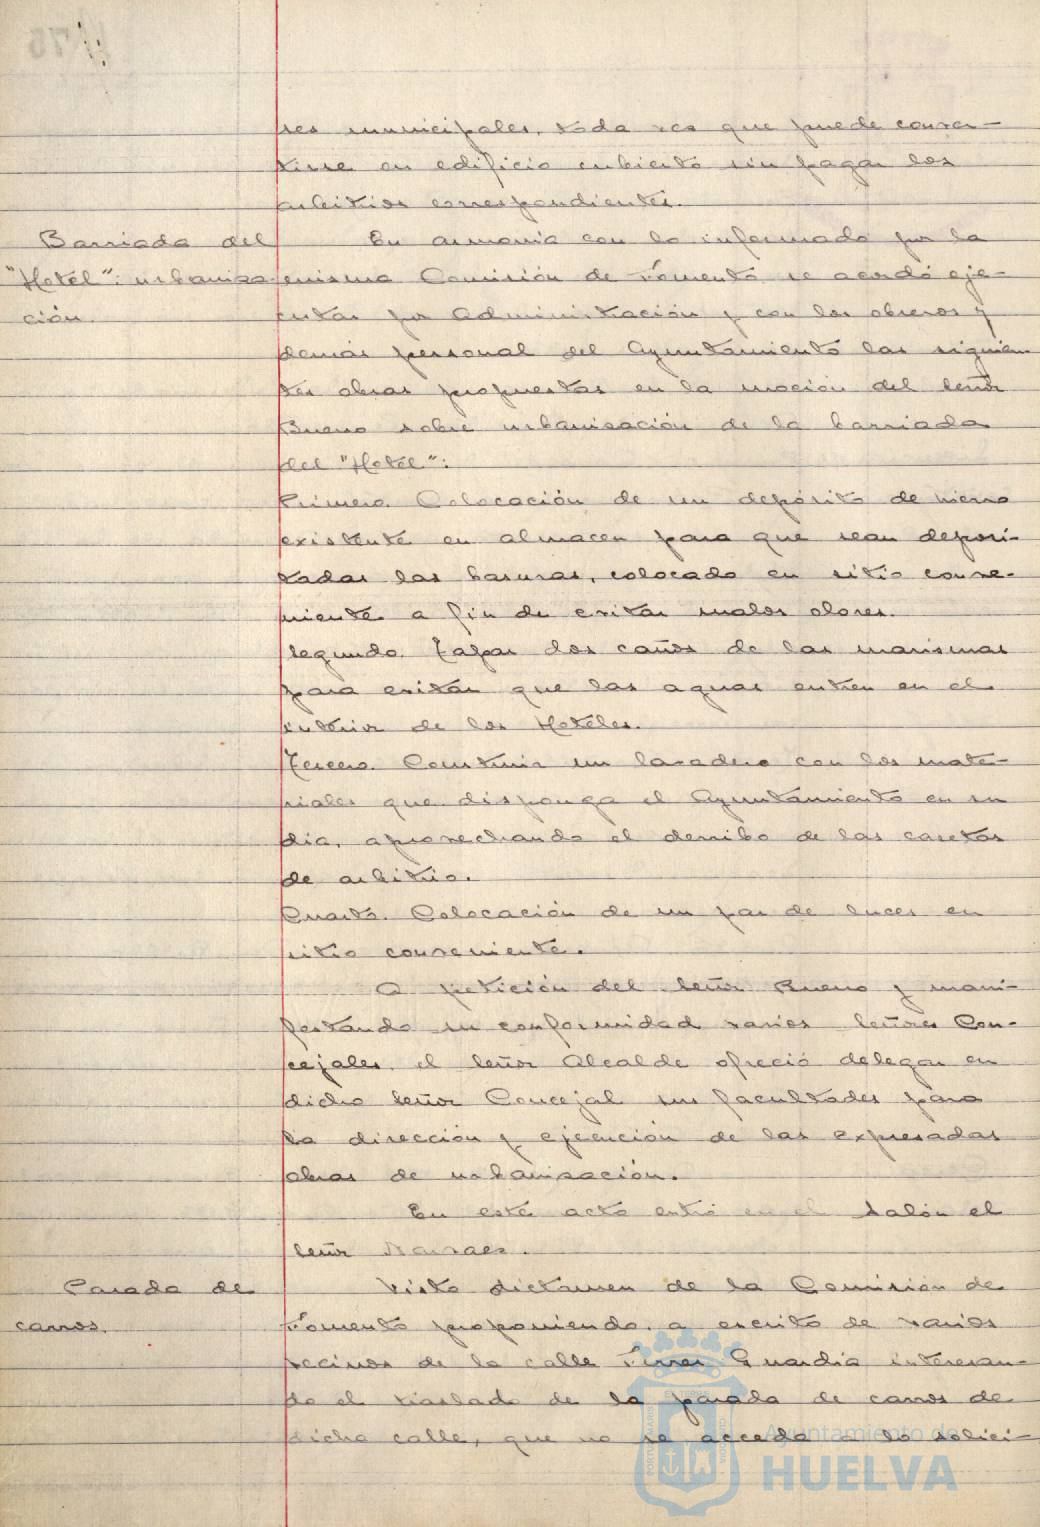 res municipales, toda vez que puede conver-
tirse en edificio cubierto sin pagar los
arbitrios correspondientes.
Barriada del
"Hotel": urbaniza
ción.
En armonía con lo informado por la
misma Comisión de Fomento se acordó eje-
cutar por Administración y con los obreros y
demás personal del Ayuntamiento las siguien
tes obras propuestas en la moción del Señor
Bueno sobre urbanización de la barriada
del "Hotel":
Primero. Colocación de un depósito de hierro
existente en almacen para que sean deposi-
tadas las basuras, colocado en sitio conve-
niente a fin de evitar malos olores.
Segundo. Tapar dos caños de las marismas
para evitar que las aguas entren en el
interior de los Hoteles.
Tercero. Construir un lavadero con los mate-
riales que disponga el Ayuntamiento en su
día, aprovechando el derribo de las casetas
de arbitrio.
Cuarto. Colocación de un par de luces en
sitio conveniente.
A petición del Señor Bueno y mani-
festando su conformidad varios Señores Con-
cejales, el Señor Alcalde ofreció delegar en
dicho Señor Concejal sus facultades para
la dirección y ejecución de las expresadas
obras de urbanización.
En este acto entró en el Salón el
Señor Narvaez.
Parada de
carros.
Visto dictamen de la Comisión de
Fomento proponiendo, a escrito de varios
vecinos de la calle Ferrer Guardia interesan-
do el traslado de la parada de carros de
dicha calle, que no se acceda a lo solici-
Ayuntamiento de
HUELVA